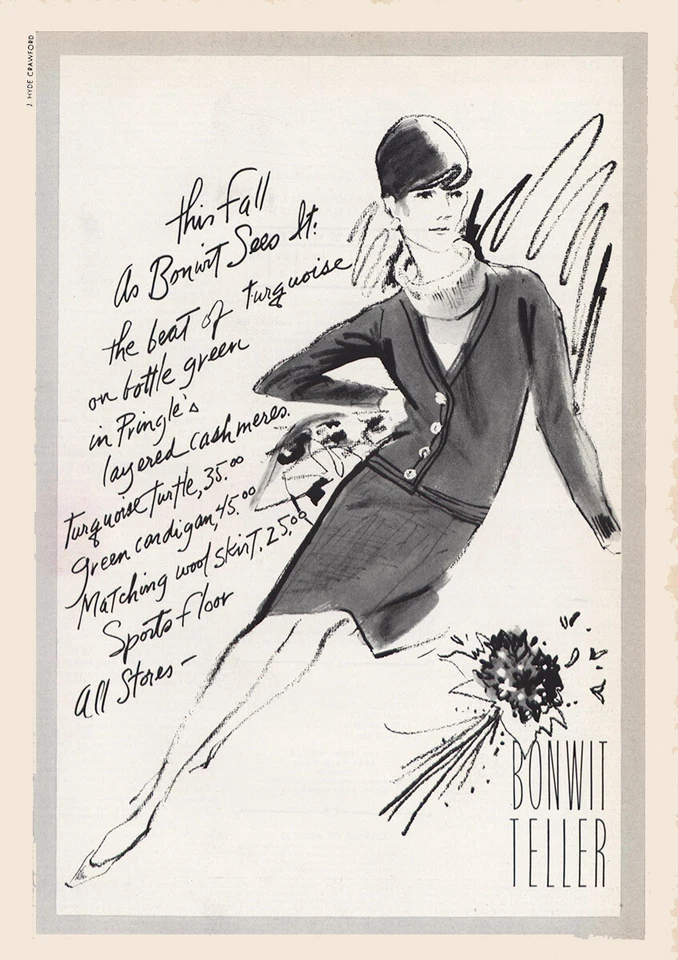 J. HYDE CRAWFORD
this Fall
As Bonwit Sees It:
the beat of turquoise
on bottle green
in Pringle's
layered cashmeres.
Turquoise turtle, 35.00
green cardigan, 45.00
Matching wool skirt, 25.00
Sports Floor
All Stores —
BONWIT
TELLER